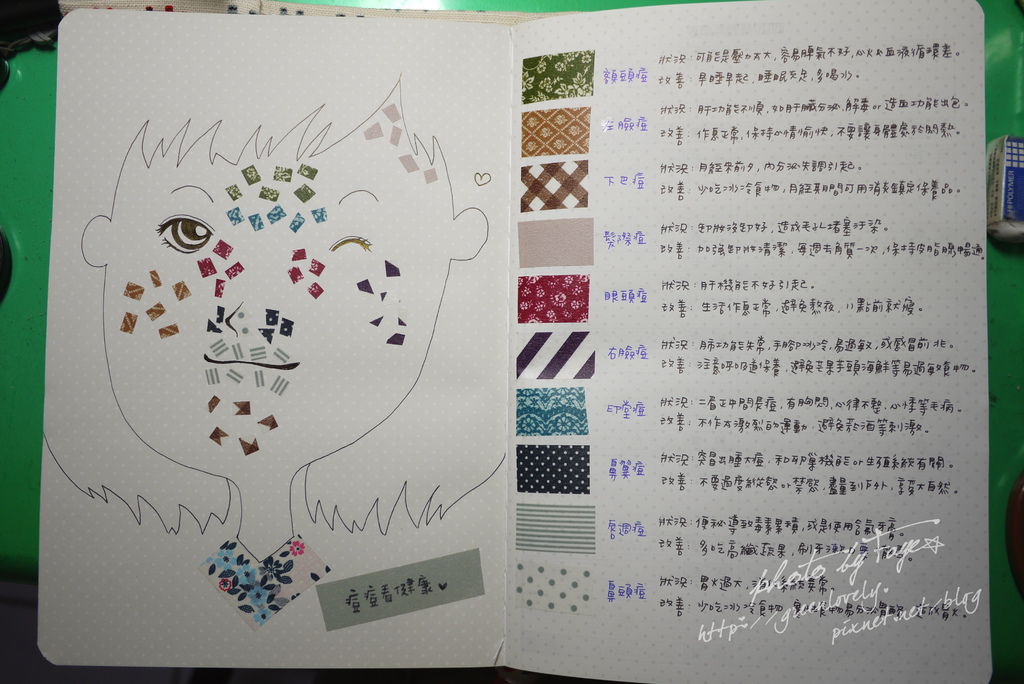 痘痘看健康♥
額頭痘
狀況：可能是壓力太大，容易脾氣不好，心火血液循環差。
改善：早睡早起，睡眠充足，多喝水。
左臉痘
狀況：肝功能不順，如肝臟分泌、解毒or造血功能出包。
改善：作息正常，保持心情愉快，不要讓身體處於悶熱。
下巴痘
狀況：月經來前夕，內分泌失調引起。
改善：少吃冰冷食物，月經期間可用消炎鎮定保養品。
髮際痘
狀況：卸妝沒卸好，造成毛孔堵塞汙染。
改善：加強卸妝清潔，每週去角質一次，保持皮脂腺暢通。
眼頭痘
狀況：肝機能不好引起。
改善：生活作息正常，避免熬夜，11點前就寢。
右臉痘
狀況：肺功能失常，手腳冰冷，易過敏，或感冒前兆。
改善：注意呼吸道保養，避免芒果芋頭海鮮等易過敏食物。
印堂痘
狀況：二眉正中間長痘，有胸悶，心律不整，心悸等毛病。
改善：不作太激烈的運動，避免菸酒等刺激。
鼻翼痘
狀況：突冒出腫大痘，和卵巢機能or生殖系統有關。
改善：不要過度縱慾or禁慾，盡量到戶外，享受大自然。
唇週痘
狀況：便祕導致毒素累積，或是使用含氟牙膏。
改善：多吃高纖蔬果，刷牙
鼻頭痘
狀況：胃火過大，消化系統異常。
改善：少吃冰冷食物，
photo by Faye☆
http://giunlovely.
pixnet.net/blog
POLYMER